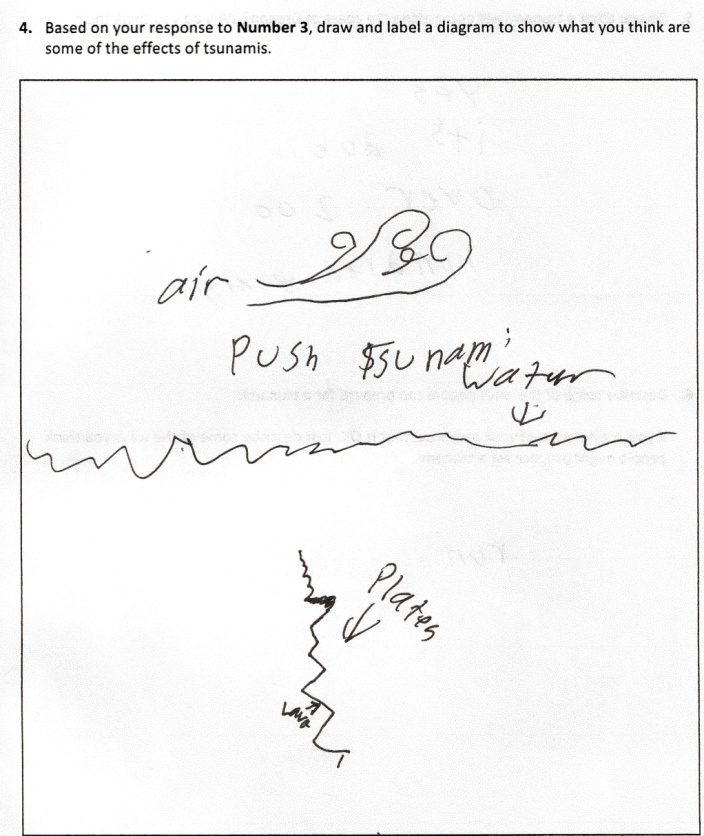 4. Based on your response to Number 3, draw and label a diagram to show what you think are
some of the effects of tsunamis.
air
Push $sunami
water
Plates
Lava